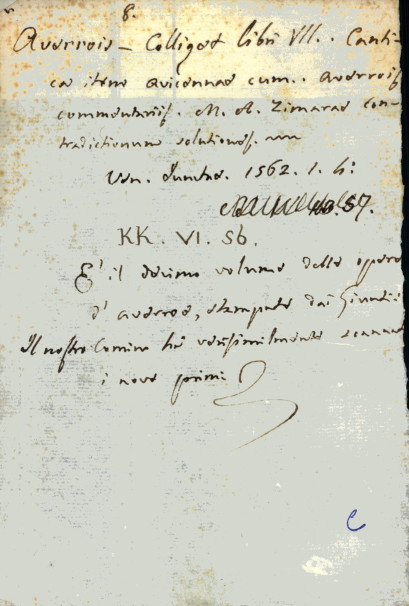 8.
Averrois – Colliget libri VII. Canti-
ca item Avicennae cum Averrois
commentariis. M. A. Zimarae Con-
tradictionum solutiones.
Ven. Juntas. 1562. 1. h:
57.
KK. VI. 56.
E' il decimo volume delle opere
d' Averroe, stampate dai Giunti:
Il nostro Comino ha verisimilmente
i nove primi
C